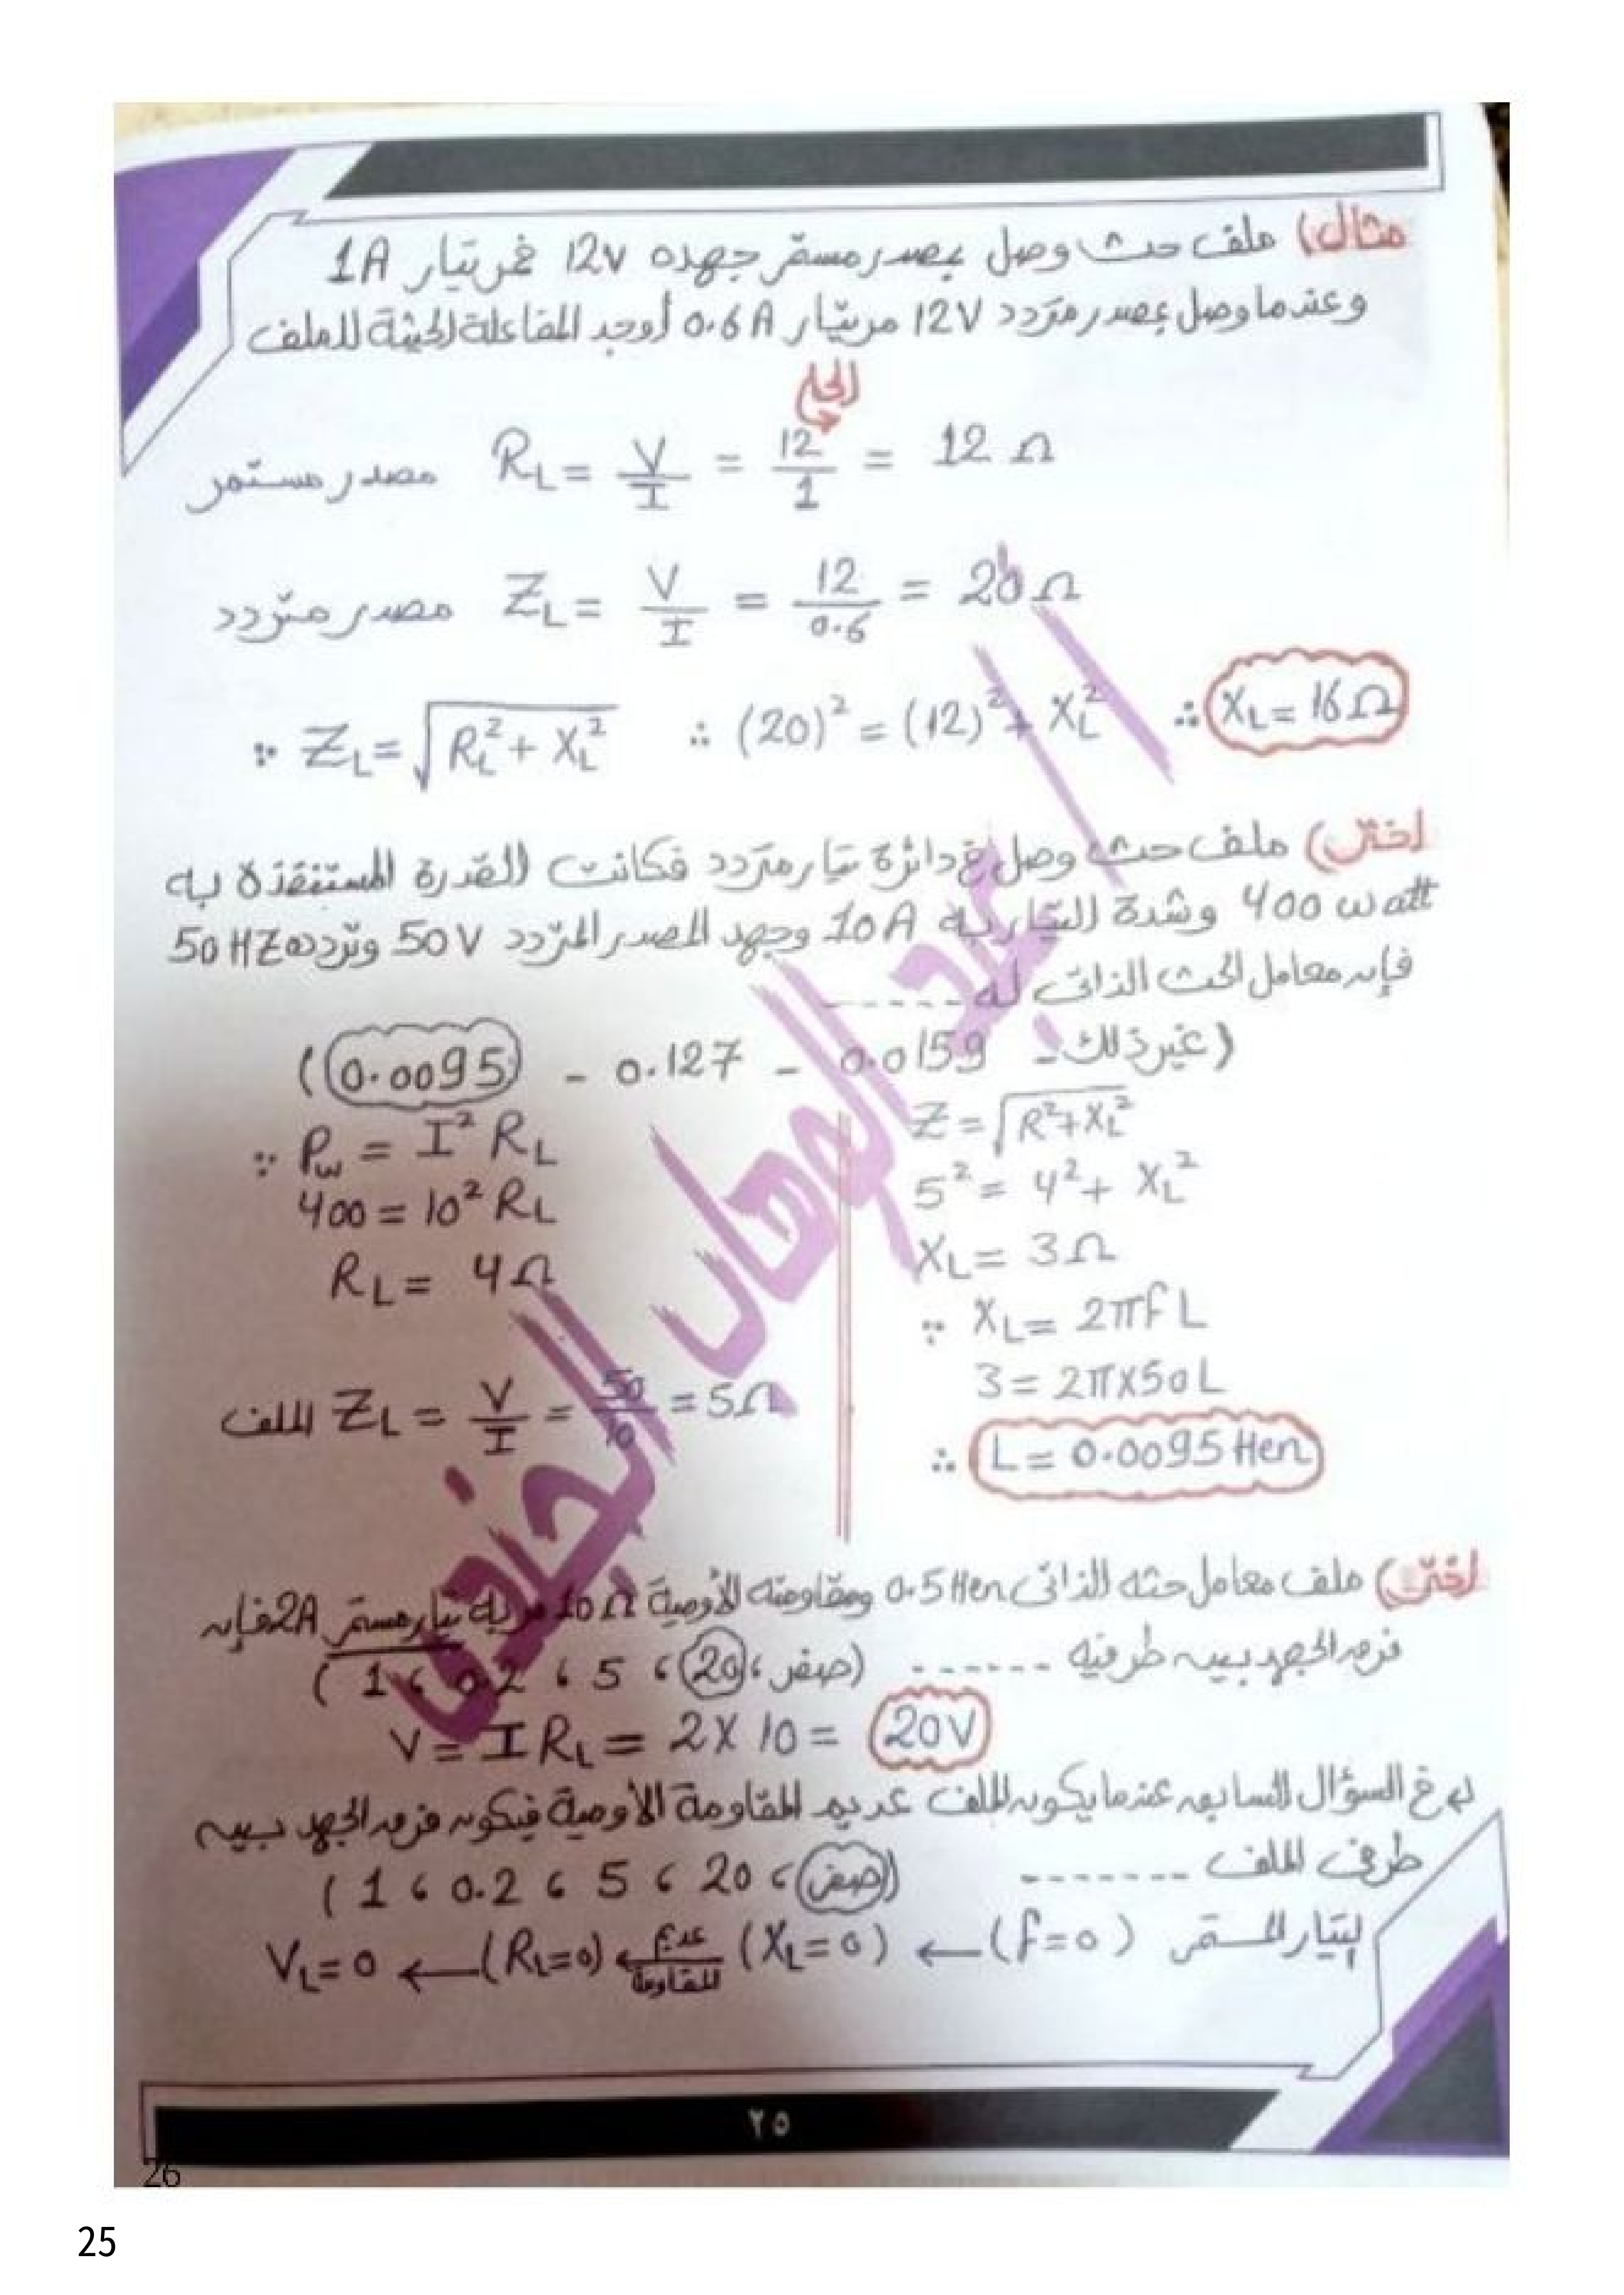 مثال) ملف حث وصل بمصدر مستمر جهده 12v فمر تيار 1A
وعندما وصل بمصدر متردد 12V مر تيار 0.6A أوجد المفاعلة الحثية للملف
الحل
مصدر مستمر R_L = V/I = 12/1 = 12 Ω
مصدر متردد Z_L = V/I = 12/0.6 = 20 Ω
∵ Z_L = √(R_L² + X_L²) ∴ (20)² = (12)² + X_L² ∴ X_L = 16 Ω
اختر) ملف حث وصل في دائرة تيار متردد فكانت القدرة المستنفذة به
400 watt وشدة التيار به 10A وجهد المصدر المتردد 50V وتردده 50HZ
فإن معامل الحث الذاتى له ------
(غير ذلك - 0.0159 - 0.127 - 0.0095)
∵ P_w = I² R_L
400 = 10² R_L
R_L = 4Ω
الملف Z_L = V/I = 50/10 = 5Ω
Z = √(R² + X_L²)
5² = 4² + X_L²
X_L = 3Ω
∵ X_L = 2πfL
3 = 2π×50L
∴ L = 0.0095 Hen
اختر) ملف معامل حثه الذاتى 0.5 Hen ومقاومته الأومية 10Ω مر به تيار مستمر 2A فإن
فرق الجهد بين طرفيه ------
(صفر، 20، 5، 0.2، 1)
V = I R_L = 2 × 10 = 20V
في السؤال السابق عندما يكون الملف عديم المقاومة الأومية فيكون فرق الجهد بين
طرفى الملف -------
(صفر، 20، 5، 0.2، 1)
التيار المستمر (f=0) ← (X_L=0) ← عديم المقاومة (R_L=0) ← V_L=0
عبد الوهاب الخولى
٢٥
26
25